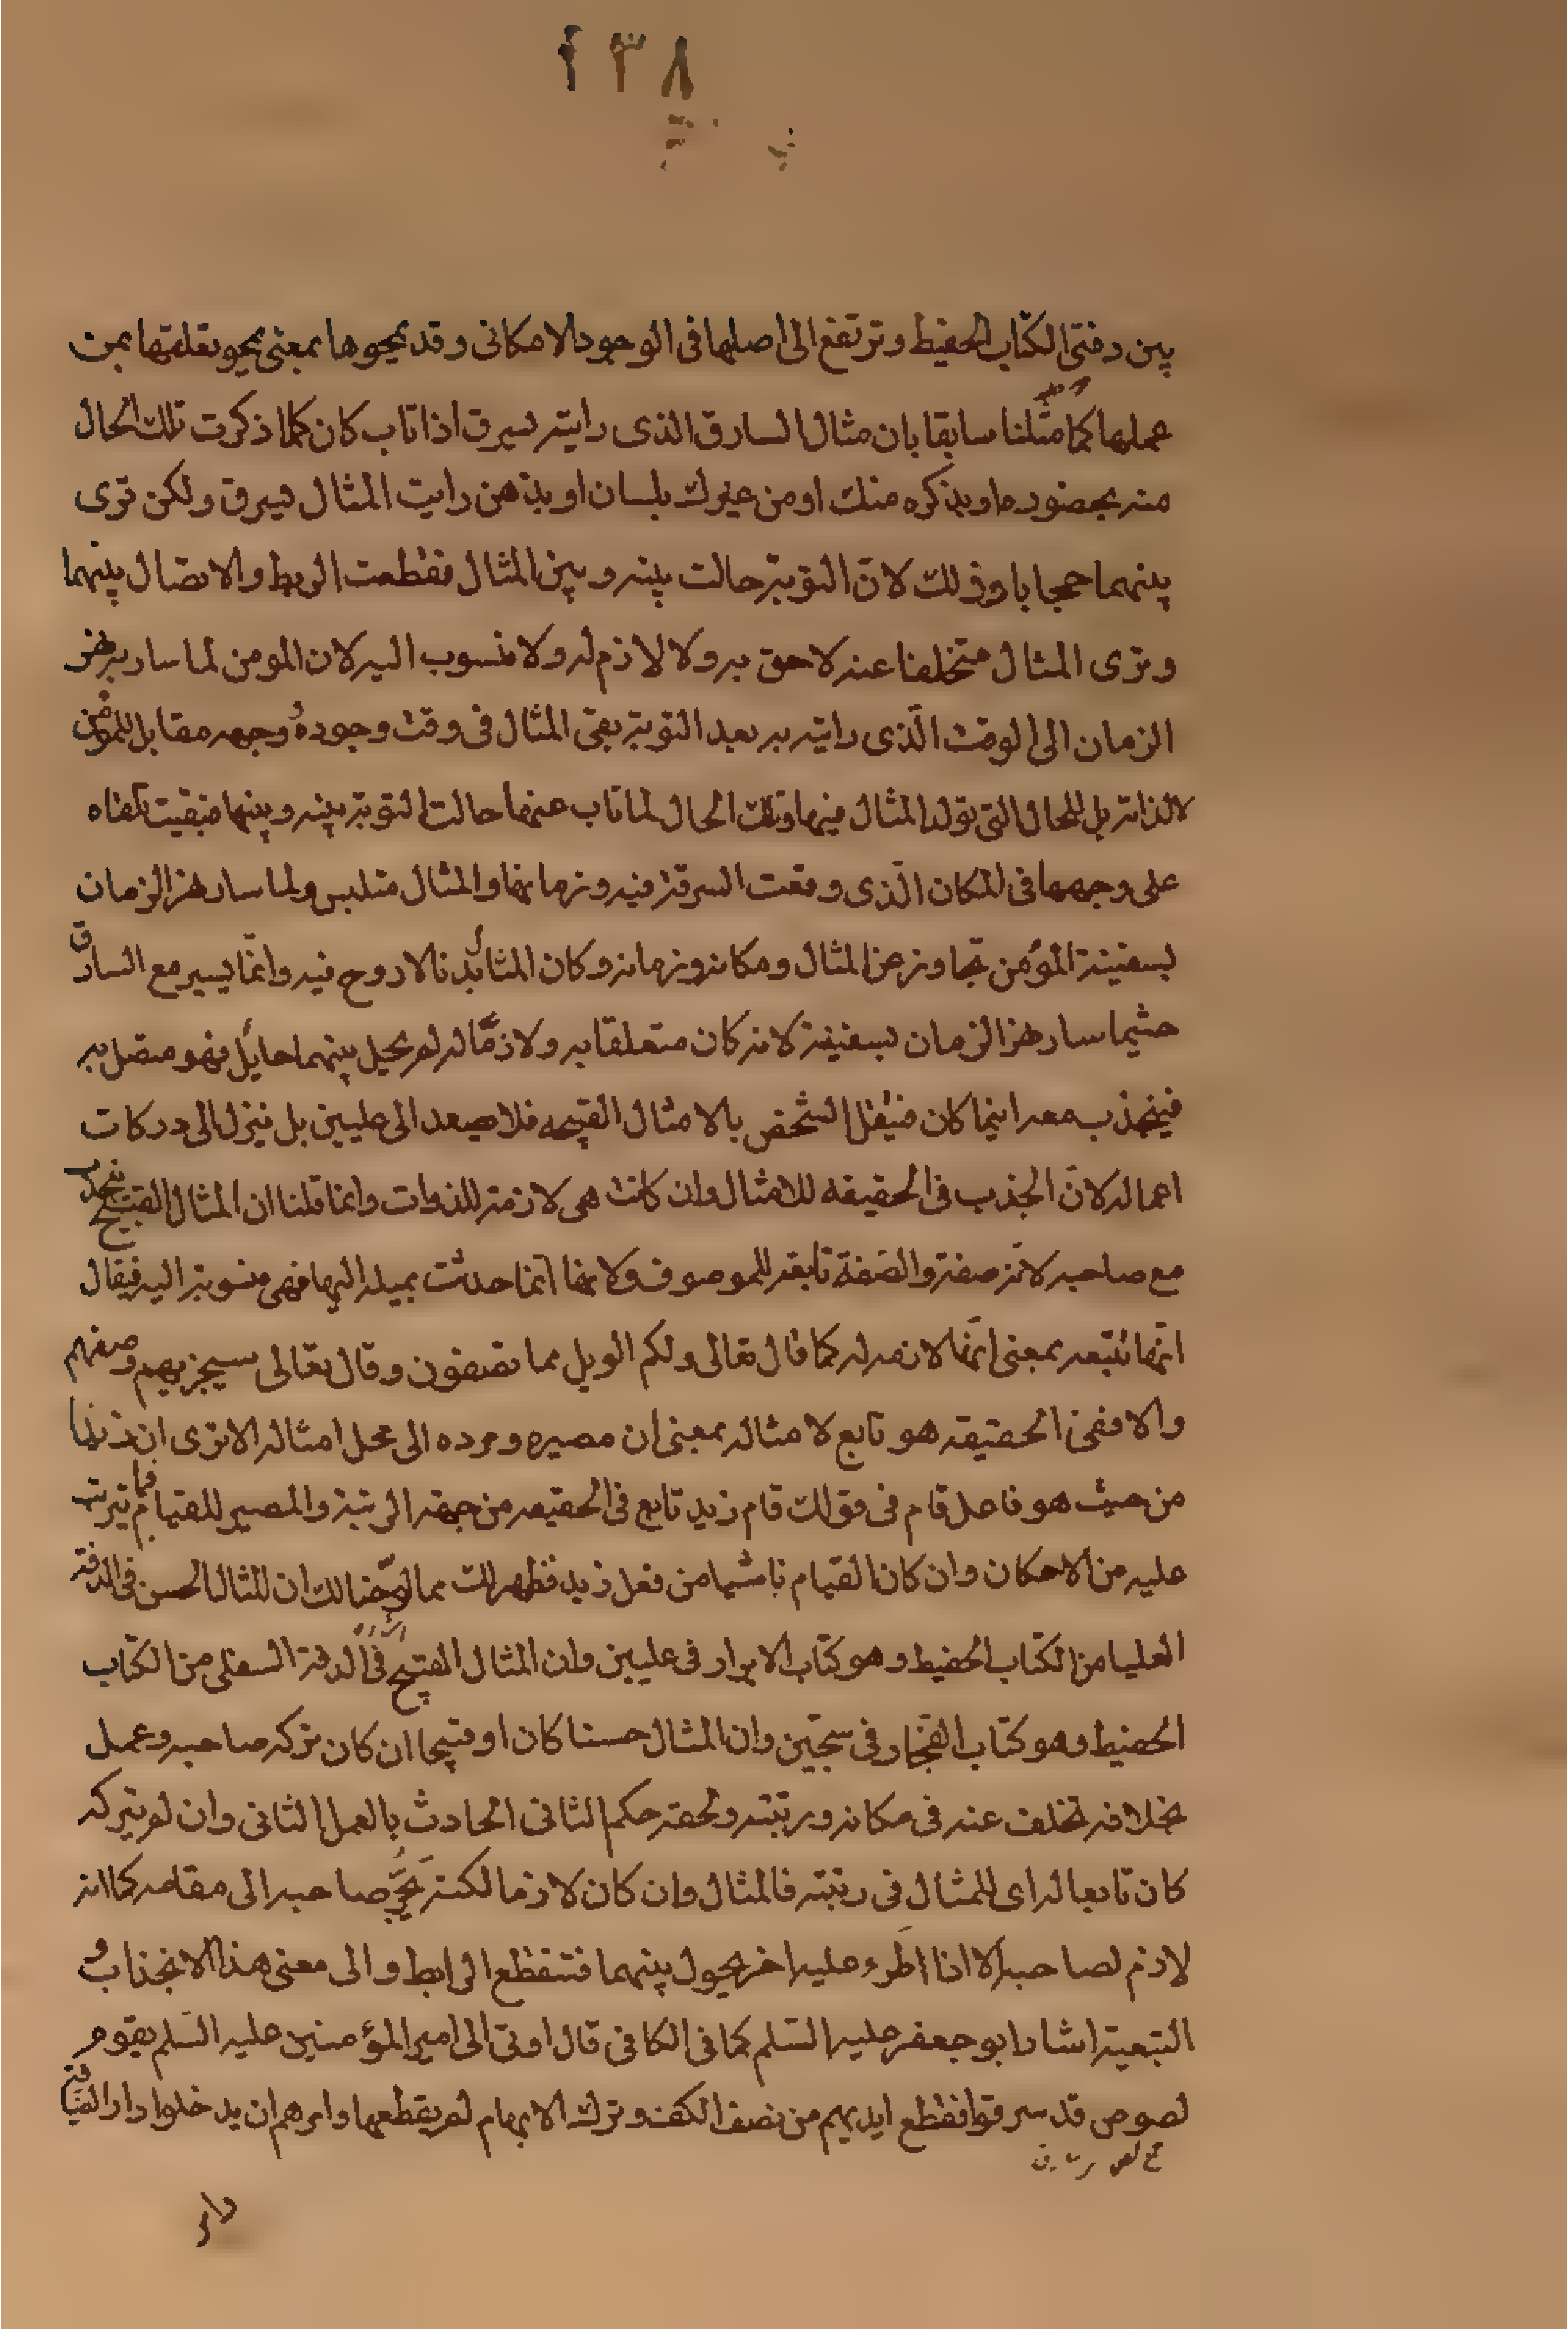 ٢٣٨
بين دفتى الكتاب الحفيظ وترتفع الى اصلها فى الوجود الامكانى وقد يمحوها بمعنى يمحو تعلقها بمن
عملها كما مثلنا سابقا بان مثال السارق الذى رايته يسرق اذا تاب كان كلما ذكرت تلك الحال
منه بحضوره او بذكره منك او من غيرك بلسان او بذهن رايت المثال يسرق ولكن ترى
بينهما حجابا وذلك لان التوبة حالت بينه وبين المثال فقطعت الربط والاتصال بينهما
وترى المثال متخلفا عنه لاحق به ولا لازم له ولا منسوب اليه لان المومن لما سار به هذ
الزمان الى الوقت الّذى رايته به بعد التوبة بقى المثال فى وقت وجوده وجهه مقابل للمؤمن
لا لذاته بل للحال التى تولد المثال فيها وتلك الحال لما تاب عنها حالت التوبة بينه وبينها فبقيت تلقاه
على وجهها فى المكان الّذى وقعت السرقة فيه وزمانها والمثال متلبس ولما سار هذ الزمان
بسفينة المؤمن تجاوز عن المثال ومكانه وزمانه وكان المثال بدنا لا روح فيه وانّما يسير مع السارق
حيثما سار هذ الزمان بسفينة لانه كان متعلقا به ولازمًا له لم يحيل بينهما حايل فهو متصل به
فينجذب معه اينما كان فيثقل الشخص بالامثال القبيحه فلا يصعد الى عليين بل ينزل الى دركات
اعماله لانّ الجذب فى الحقيقه للامثال وان كانت هى لازمة للذوات وانما قلنا ان المثال القبيح ينجذب
مع صاحبه لانّه صفته والصّفة تابعة للموصوف ولانها انما حدثت بميله اليها فهى منسوبة اليه فيقال
انّها تتبعه بمعنى انّها لازمه له كما قال تعالى ولكم الويل مما تصفون وقال تعالى سيجزيهم وصفهم
والا ففى الحقيقه هو تابع لامثاله بمعنى ان مصيره ومرده الى محل امثاله الا ترى ان زيدا
من حيث هو فاعل قام فى قولك قام زيد تابع فى الحقيقه من جهة الرتبة والمصير للقيام فيما يترتب
عليه من الاحكام وان كان القيام ناشيا من فعل زيد فظهر لك مما لوّحنا لك ان المثال الحسن فى الدفة
العليا من الكتاب الحفيظ وهو كتاب الابرار فى عليين وان المثال القبيح فى الدفة السفلى من الكتاب
الحفيظ وهو كتاب الفجّار فى سجّين وان المثال حسنا كان او قبيحا ان كان تركه صاحبه وعمل
بخلافه تخلف عنه فى مكانه ورتبته ولحقه حكم الثانى الحادث بالعمل الثانى وان لم يتركه
كان تابعا له اى للمثال فى رتبته فالمثال وان كان لازما لكنه يَجُرّ صاحبه الى مقامه كما انه
لازم لصاحبه الا اذا اطرء عليه اخر يحول بينهما فتنقطع الرابط والى معنى هذا الانجذاب و
التبعية اشار ابو جعفر عليه السّلم كما فى الكافى قال اوتى الى امير المؤمنين عليه السّلم بقوم
لصوص قد سرقوا فقطع ايديهم من نصف الكف وترك الابهام لم يقطعها وامرهم ان يدخلوا دار الضيافة
دار